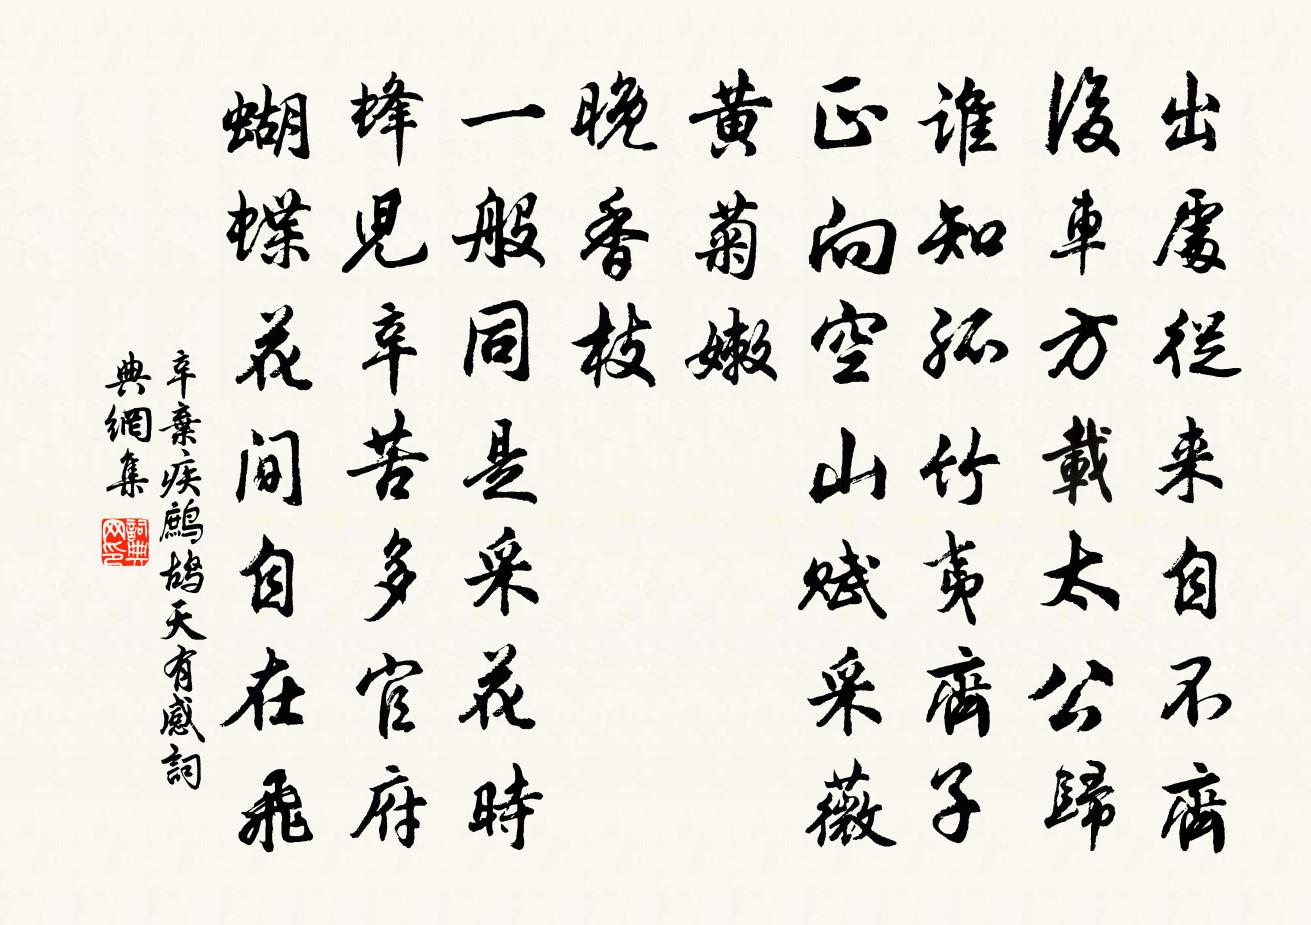 出處從来自不齊
後車方載太公歸
誰知孤竹夷齊子
正向空山賦采薇
黄菊嫩
晚香枝
一般同是采花時
蜂児辛苦多官府
蝴蝶花间自在飛
辛棄疾鷓鴣天有感詞
典網集
詞典
网印